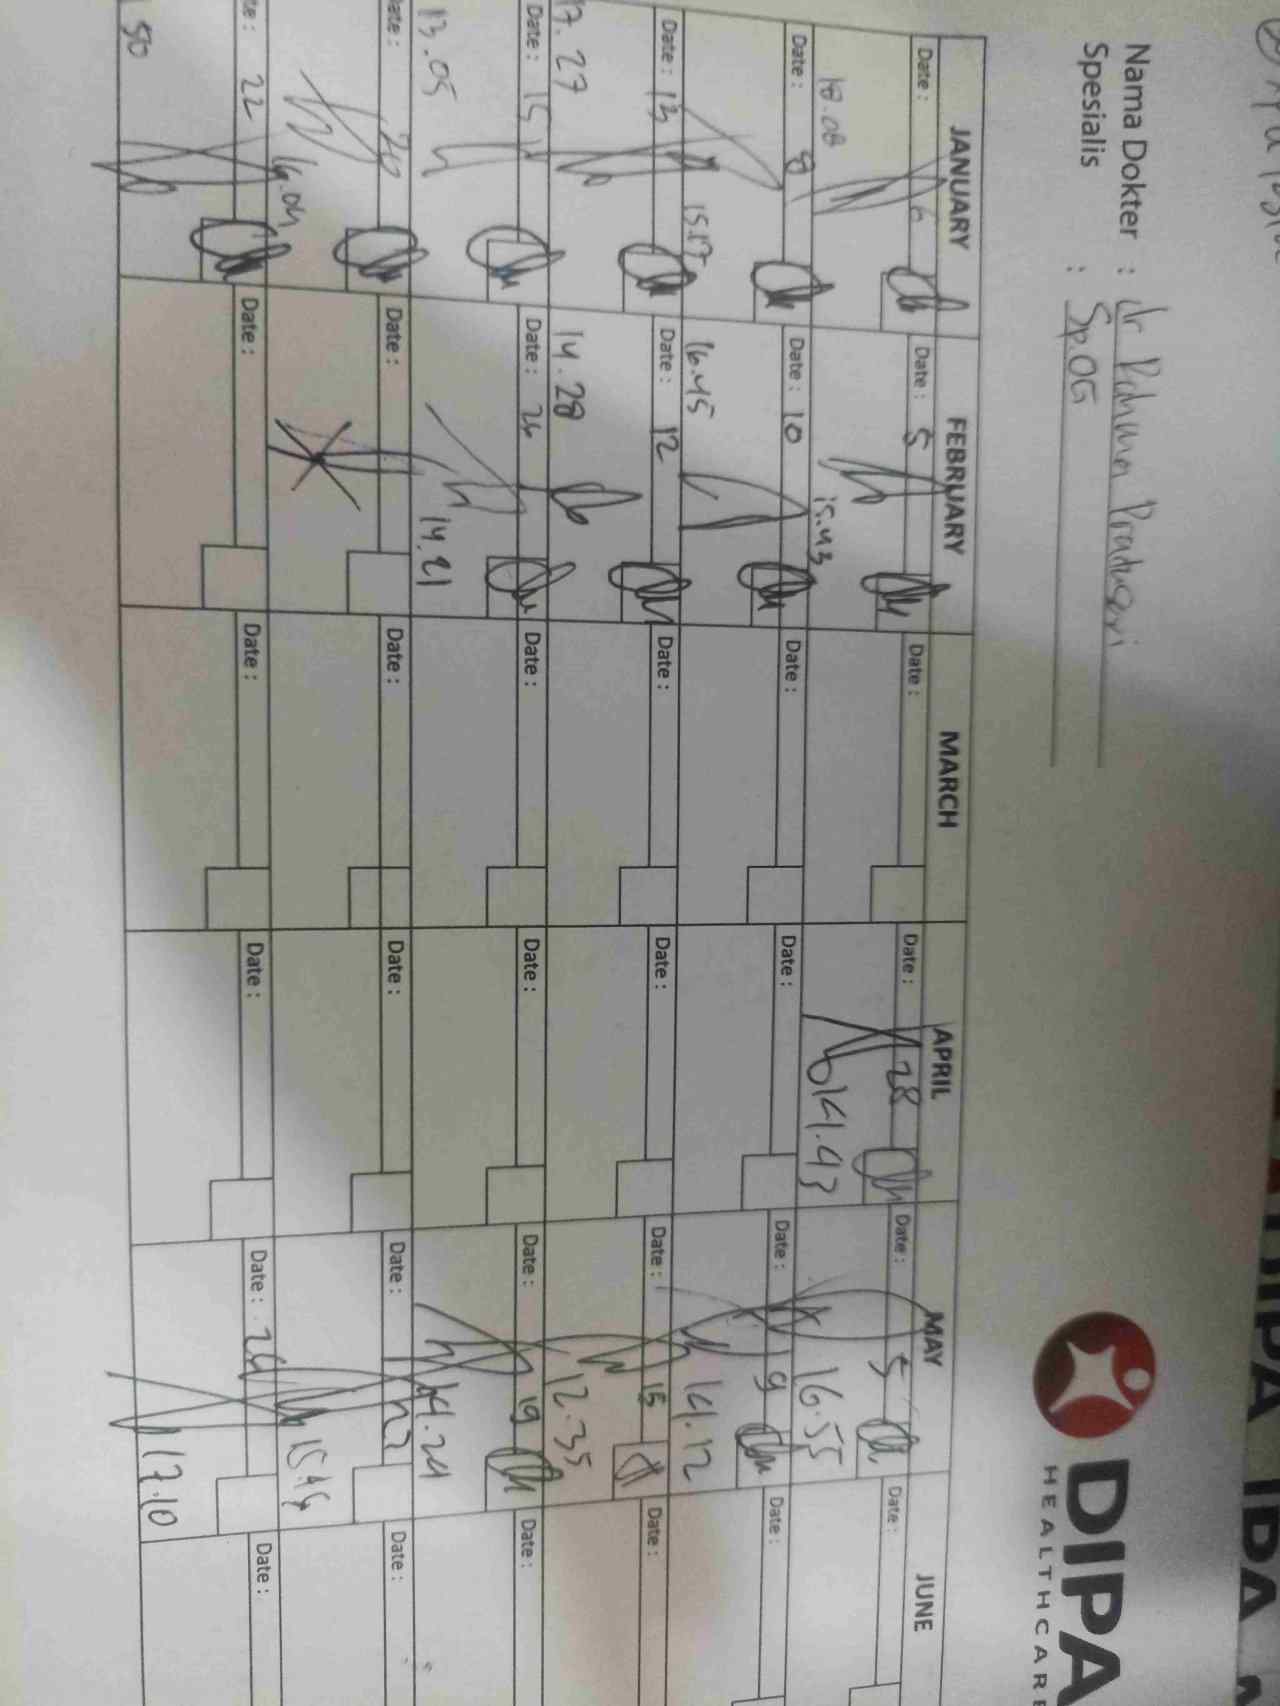 DIPA
HEALTHCARE
Nama Dokter : dr
Spesialis : Sp.OG
JANUARY FEBRUARY MARCH APRIL MAY JUNE
Date : 6 Date : 5 Date : Date : 28 Date : 5 Date :
18.08 15.43 14.43 16.55
Date : 8 Date : 10 Date : Date : Date : 9 Date :
15.17 16.45 14.12
Date : 13 Date : 12 Date : Date : Date : 15 Date :
17.27 14.28 12.35
Date : 15 Date : 26 Date : Date : Date : 19 Date :
13.05 14.21 14.24
Date : 20 Date : Date : Date : Date : Date :
16.04
Date : 22 Date : Date : Date : Date : 26 Date :
17.10